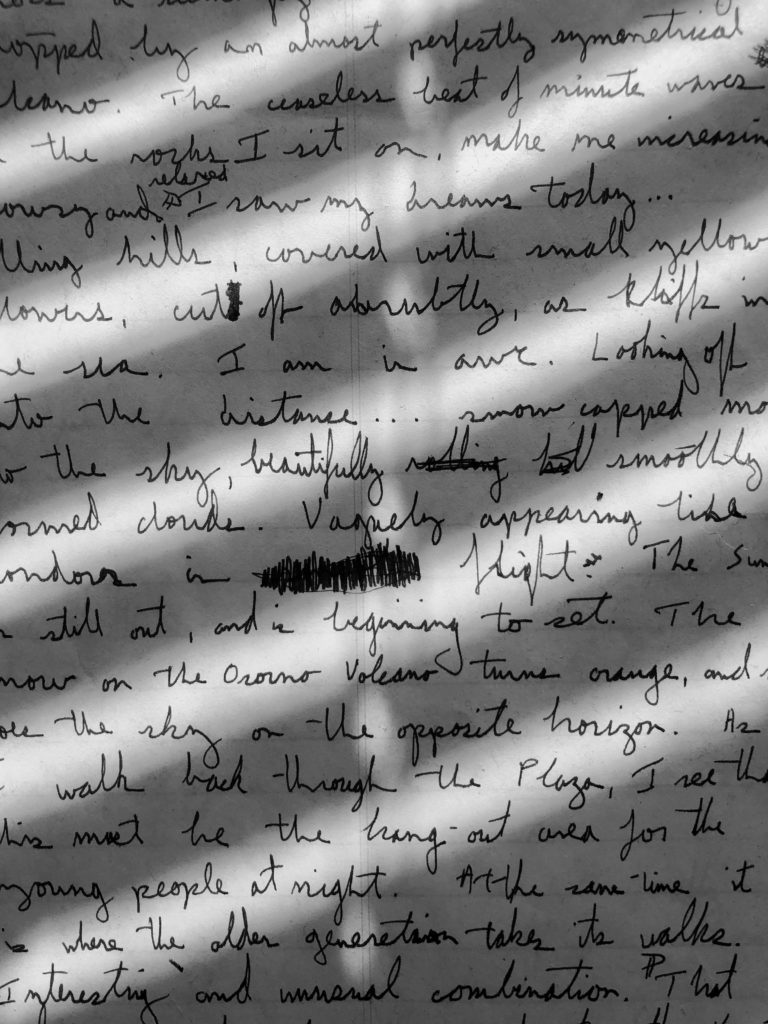 opped by an almost perfectly symmetrical
lcano. The ceaseless beat of minute waves
the rocks I sit on, make me increasin
relaxed
owsy and I saw my dreams today...
lling hills, covered with small yellow
lowers, cut off abrubtly, as kliffs in
he sea. I am in awe. Looking off
nto the distance... snow capped mo
to the sky, beautifully rolling smoothly
ormed clouds. Vaguely appearing like
ondors in flight. The sun
is still out, and is beginning to set. The
snow on the Osorno Volcano turns orange, and s
oes the sky on the opposite horizon. As
I walk back through the Plaza, I see tha
this must be the hang-out area for the
young people at night. At the same time it
is where the older generation takes its walks.
Interesting and unusual combination. That